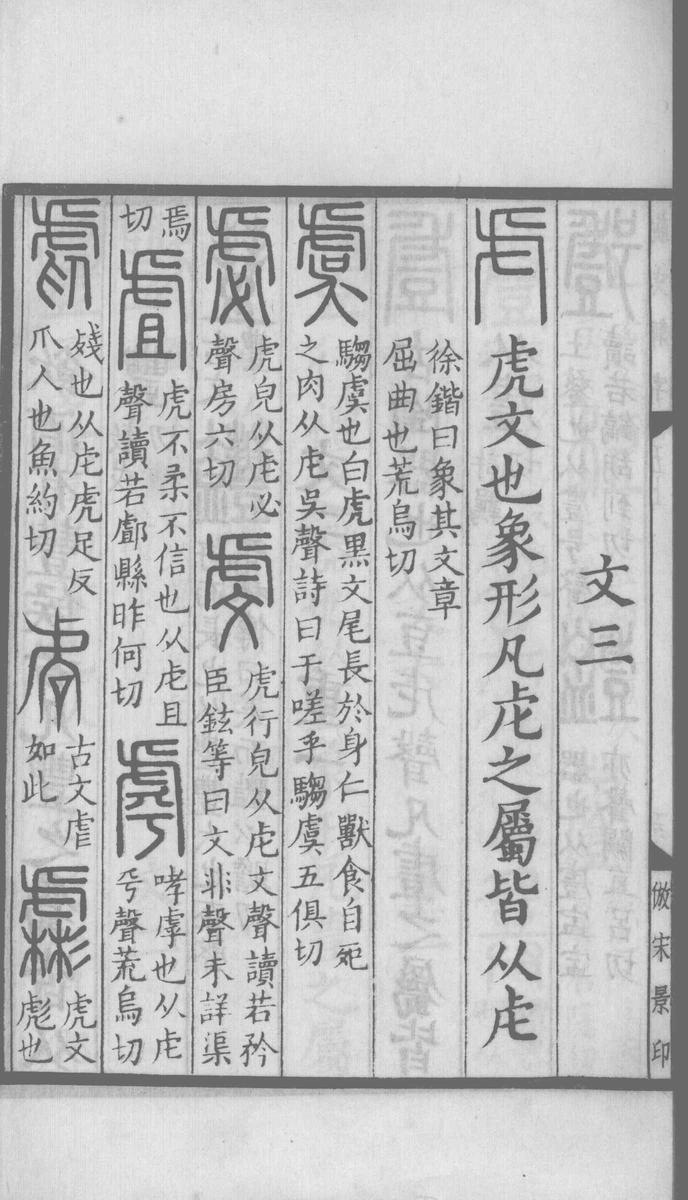 文三
虍 虎文也象形凡虍之屬皆从虍
徐鍇曰象其文章
屈曲也荒烏切
虞 騶虞也白虎黑文尾長於身仁獸食自死
之肉从虍吳聲詩曰于嗟乎騶虞五俱切
虙 虎皃从虍必
聲房六切
虔 虎行皃从虍文聲讀若矜
臣鉉等曰文非聲未詳渠
焉
切
虘 虎不柔不信也从虍且
聲讀若鄌縣昨何切
虖 哮虖也从虍
乎聲荒烏切
虐 殘也从虍虎足反
爪人也魚約切
古文虐
如此
虨 虎文
彪也
倣宋景印